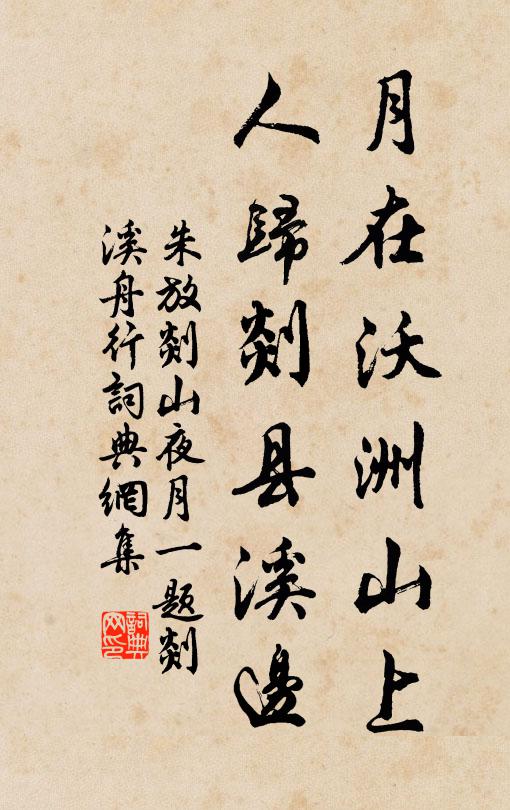 月在沃洲山上
人歸剡县溪邊
朱放剡山夜月一題剡
溪舟行詞典網集
詞典
网印